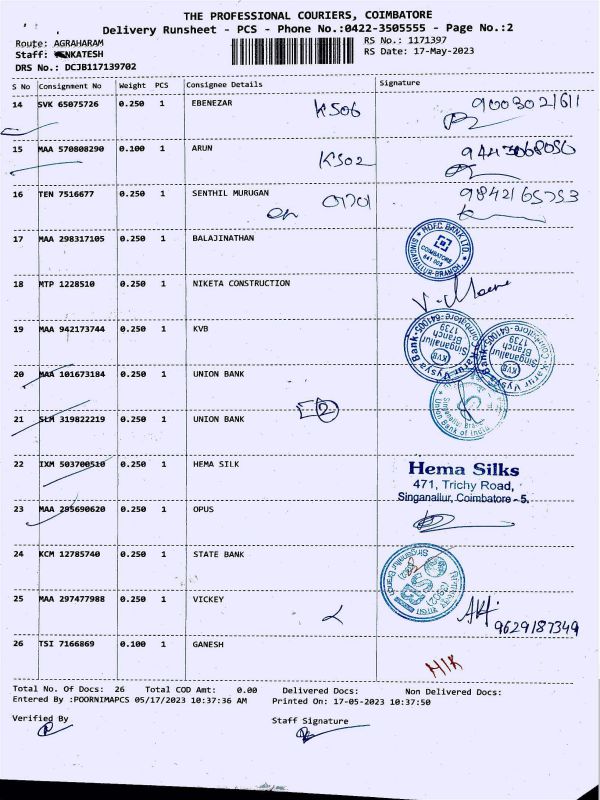 THE PROFESSIONAL COURIERS, COIMBATORE
Delivery Runsheet - PCS - Phone No.:0422-3505555 - Page No.:2
Route: AGRAHARAM RS No.: 1171397
Staff: VENKATESH RS Date: 17-May-2023
DRS No.: DCJB117139702
S No Consignment No Weight PCS Consignee Details Signature
14 SVK 65075726 0.250 1 EBENEZAR K506 9003021611
15 MAA 570808290 0.100 1 ARUN K502 9443068056
16 TEN 7516677 0.250 1 SENTHIL MURUGAN 9842165753
17 MAA 298317105 0.250 1 BALAJINATHAN
HDFC BANK LTD. COIMBATORE 641 005 SINGANALLUR BRANCH
18 MTP 1228510 0.250 1 NIKETA CONSTRUCTION
19 MAA 942173744 0.250 1 KVB
Karur Vysya Bank Singanallur Branch 1739 KVB Coimbatore-641005
Karur Vysya Bank Singanallur Branch 1739 KVB Coimbatore-641005
20 MAA 101673184 0.250 1 UNION BANK
Union Bank of India
21 SLM 319822219 0.250 1 UNION BANK E2
22 IXM 503700510 0.250 1 HEMA SILK
Hema Silks
471, Trichy Road,
Singanallur, Coimbatore - 5.
23 MAA 295690620 0.250 1 OPUS
24 KCM 12785740 0.250 1 STATE BANK
Singanallur Branch
25 MAA 297477988 0.250 1 VICKEY 9629187349
26 TSI 7166869 0.100 1 GANESH
Total No. Of Docs: 26 Total COD Amt: 0.00 Delivered Docs: Non Delivered Docs:
Entered By :POORNIMAPCS 05/17/2023 10:37:36 AM Printed On: 17-05-2023 10:37:50
Verified By Staff Signature